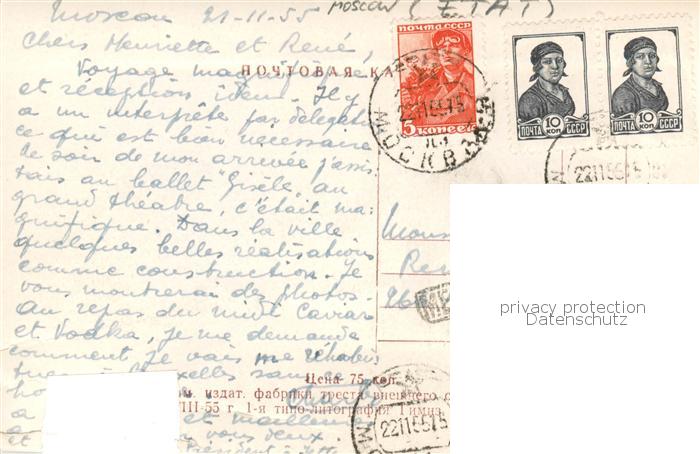 Moscou 21-11-55
MOSCOW (ETAT)
Chers Henriette et René,
Voyage magnifique
ПОЧТОВАЯ КА
et réception idem. Il y
a un interprète par délégation
ce qui est bien nécessaire
Le soir de mon arrivée j'assis
tais au ballet "Gisèle" au
grand théatre, c'était ma
gnifique. Dans la ville
quelques belles réalisations
comme construction. Je
vous montrerai des photos.
Au repas du midi Caviar
et Vodka, je me demande
comment je vais me réhabi
tuer à Bruxelles sans
Цена 75 коп.
издат. фабрики треста внешнего
III-55 г. 1-я типо-литография Гимиз
et meilleures
vous deux.
et
ПОЧТА СССР
5 КОПЕЕК
МОСКВА
22 11 55 15
10 КОП
ПОЧТА СССР
10 КОП
ПОЧТА СССР
22 11 55 15
Mons
Ren
22 11 55 15
privacy protection
Datenschutz